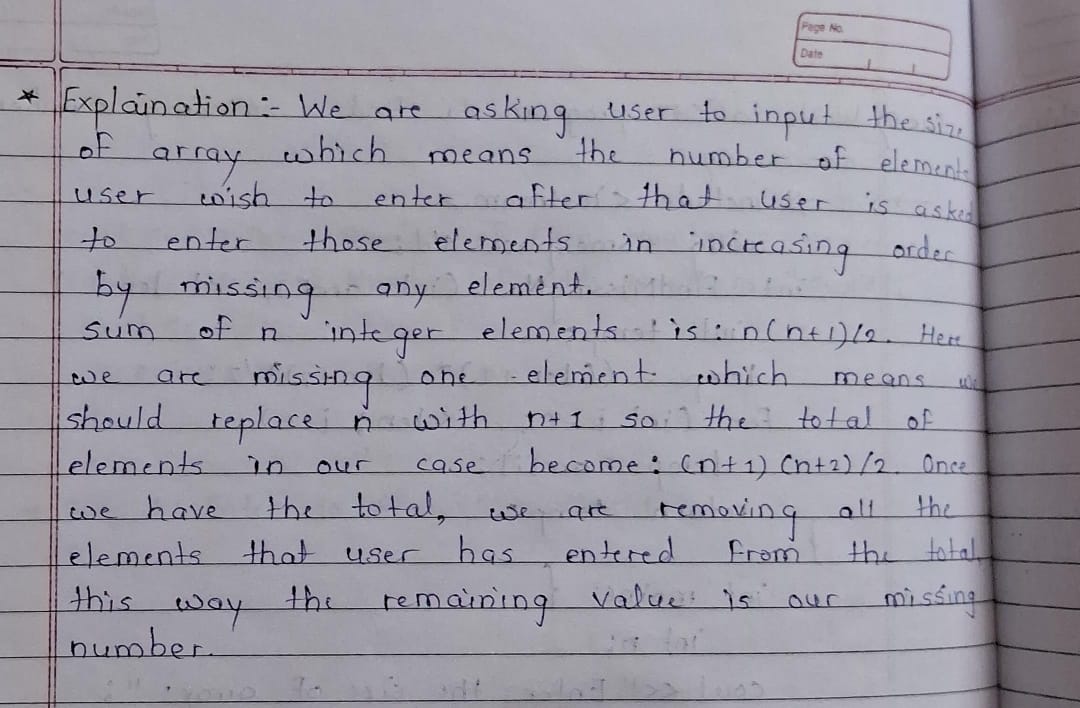 Page No.
Date
* Explaination :- We are asking user to input the size
of array which means the number of elements
user wish to enter after that user is asked
to enter those elements in increasing order
by missing any element.
sum of n integer elements is : n(n+1)/2. Here
we are missing one element which means we
should replace n with n+1 so the total of
elements in our case become : (n+1) (n+2)/2. Once
we have the total, we are removing all the
elements that user has entered from the total
this way the remaining value is our missing
number.